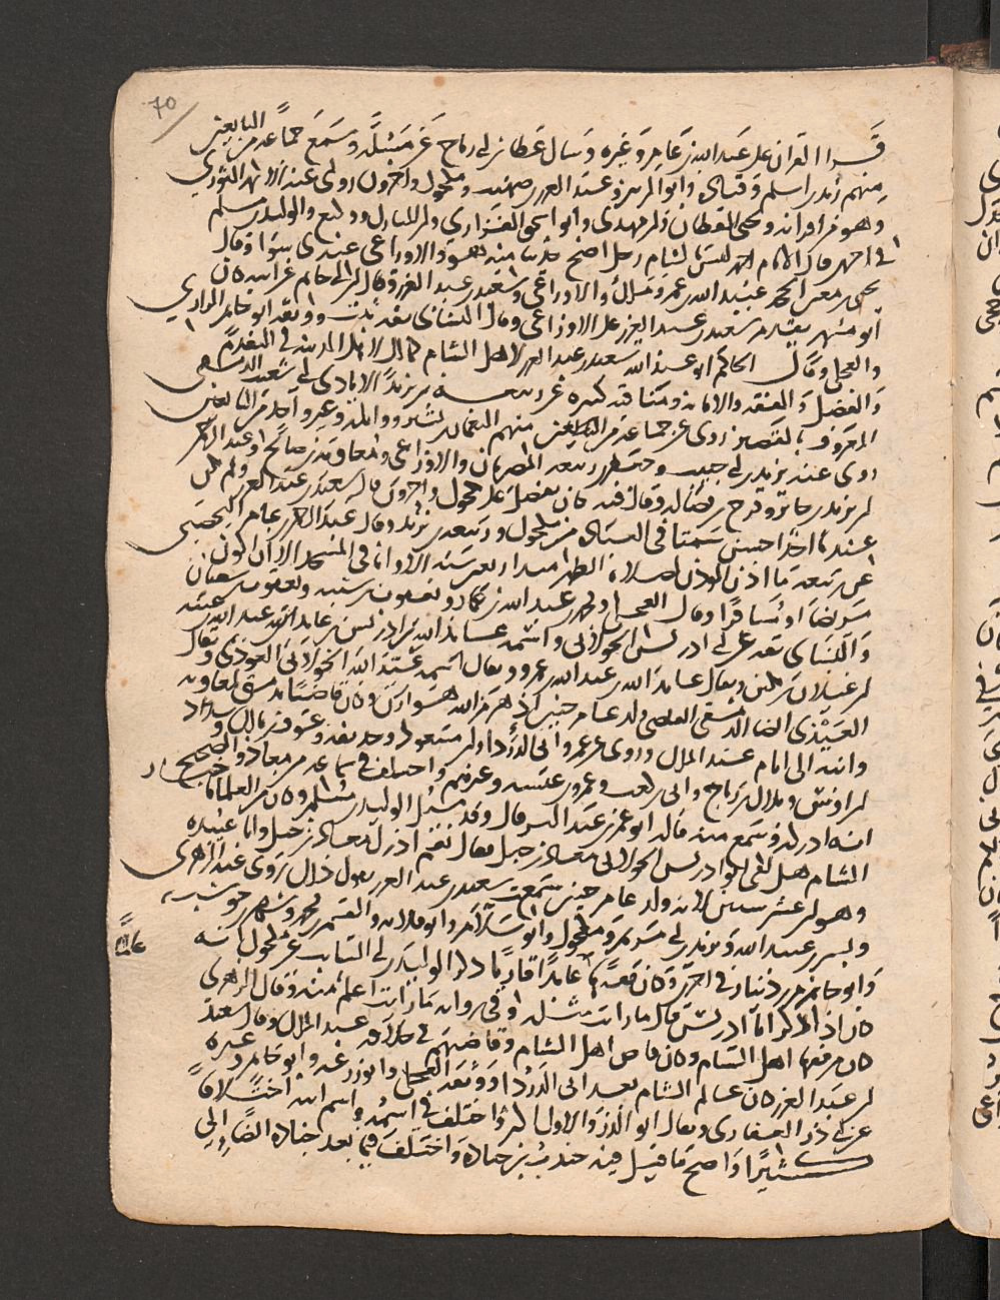 70
قرا القران على عبد الله بن عامر وغيره وسال عطا بن ابي رباح عن مسئلة وسمع جماعة من التابعين
منهم زيد بن اسلم وقتادة وابو الزبير وعبد العزيز بن صهيب ومكحول واخرون روى عنه الثوري
وهو من اقرانه ويحيى القطان وابن مهدي وابو اسحق الفزاري وابن المبارك ووكيع والوليد بن مسلم
في اخرين قال الامام احمد ليس بالشام رجل اصح حديثا منه هو والاوزاعي عندي سوا وقال
يحيى بن معين عبيد الله بن عمر ومالك والاوزاعي وسعيد بن عبد العزيز وقال ابن ابي حاتم كان
ابو مسهر يقدم سعيد بن عبد العزيز على الاوزاعي وقال النسائي ثقة ثبت ووثقه ابو حاتم الرازي
والعجلي وقال الحاكم ابو عبد الله سعيد بن عبد العزيز لاهل الشام كمالك لاهل المدينة في التقدم
والفضل والفقه والامانه ومناقبه كثيره عن ربيعة بن يزيد الايادي ابي شعيب الدمشقي
المعروف بالقصير روى عن جماعة من التابعين منهم النعمان بن بشير وواثلة وغيره
روى عنه يزيد بن ابي حبيب وجعفر بن ربيعه المصريان والاوزاعي ومعاوية بن صالح وعبد الرحمن
بن يزيد بن جابر وفرج بن فضاله وقال فيه كان يفضل على مكحول واخرون قال سعيد بن عبد العزيز ولم يكن
عندنا احدا احسن سمتا في العبادة من مكحول وربيعه بن يزيد وقال عبد الرحمن بن عامر اليحصبي
عن ربيعة ما اذن الموذن لصلاة الظهر منذ اربعين سنه الا وانا في المسجد الا ان اكون
مريضا او مسافرا وقال العجلي ومحمد بن عبد الله بن عمار ويعقوب بن شيبه ويعقوب بن سفيان
والنسائي ثقة عن ابي ادريس الخولاني واسمه عايذ الله بن ادريس بن عايذ بن عبد الله بن عتبه
بن غيلان ويقال عايذ الله بن عبد الله بن عمرو ويقال اسمه عبد الله الخولاني العوذي ويقال
العيذي ايضا الدمشقي القاضي ولد عام حنين اذ هزم الله هوازن وكان قاضيا بدمشق لمعاويه
وابنه الى ايام عبد الملك وروى عن عمر وابي الدردا وابن مسعود وحذيفه وعوف بن مالك وشداد
بن اوس وبلال بن رباح وابي ثعلبه وعمرو بن عبسه وغيرهم واختلف في سماعه من معاذ والصحيح
انه ادركه وسمع منه قاله ابو عمر بن عبد البر قال وقد سئل الوليد بن مسلم وكان من العلماء باخبار
الشام هل لقي ابو ادريس الخولاني معاذ بن جبل فقال نعم ادرك معاذ بن جبل وابا عبيده
وهو ابن عشر سنين لانه ولد عام حنين سمعت سعيد بن عبد العزيز يقول ذلك روى عنه الزهري
وبسر بن عبيد الله ويزيد بن ابي مريم ومكحول وابو سلام وابو قلابه والقسم بن محمد وشهر بن حوشب
وابو حازم بن دينار في اخرين وكان فقيها عابدا قاريا ذكر الوليد بن ابي السائب عن مكحول انه
كان اذا ذكر ابا ادريس قال ما رايت مثله وفي رواية ما رايت اعلم منه وقال الزهري
كان من فقهاء اهل الشام وكان قاص اهل الشام وقاضيهم في خلافة عبد الملك وقال سعيد
بن عبد العزيز كان عالم الشام بعد ابي الدردا ووثقه العجلي وابو زرعه وابو حاتم وغيره
عن ابي ذر الغفاري ويقال ابو الذر والاول اكثر واختلف في اسمه واسم ابيه اختلافا
كثيرا واصح ما قيل فيه جندب بن جنادة واختلف فيما بعد جناده ايضا الى